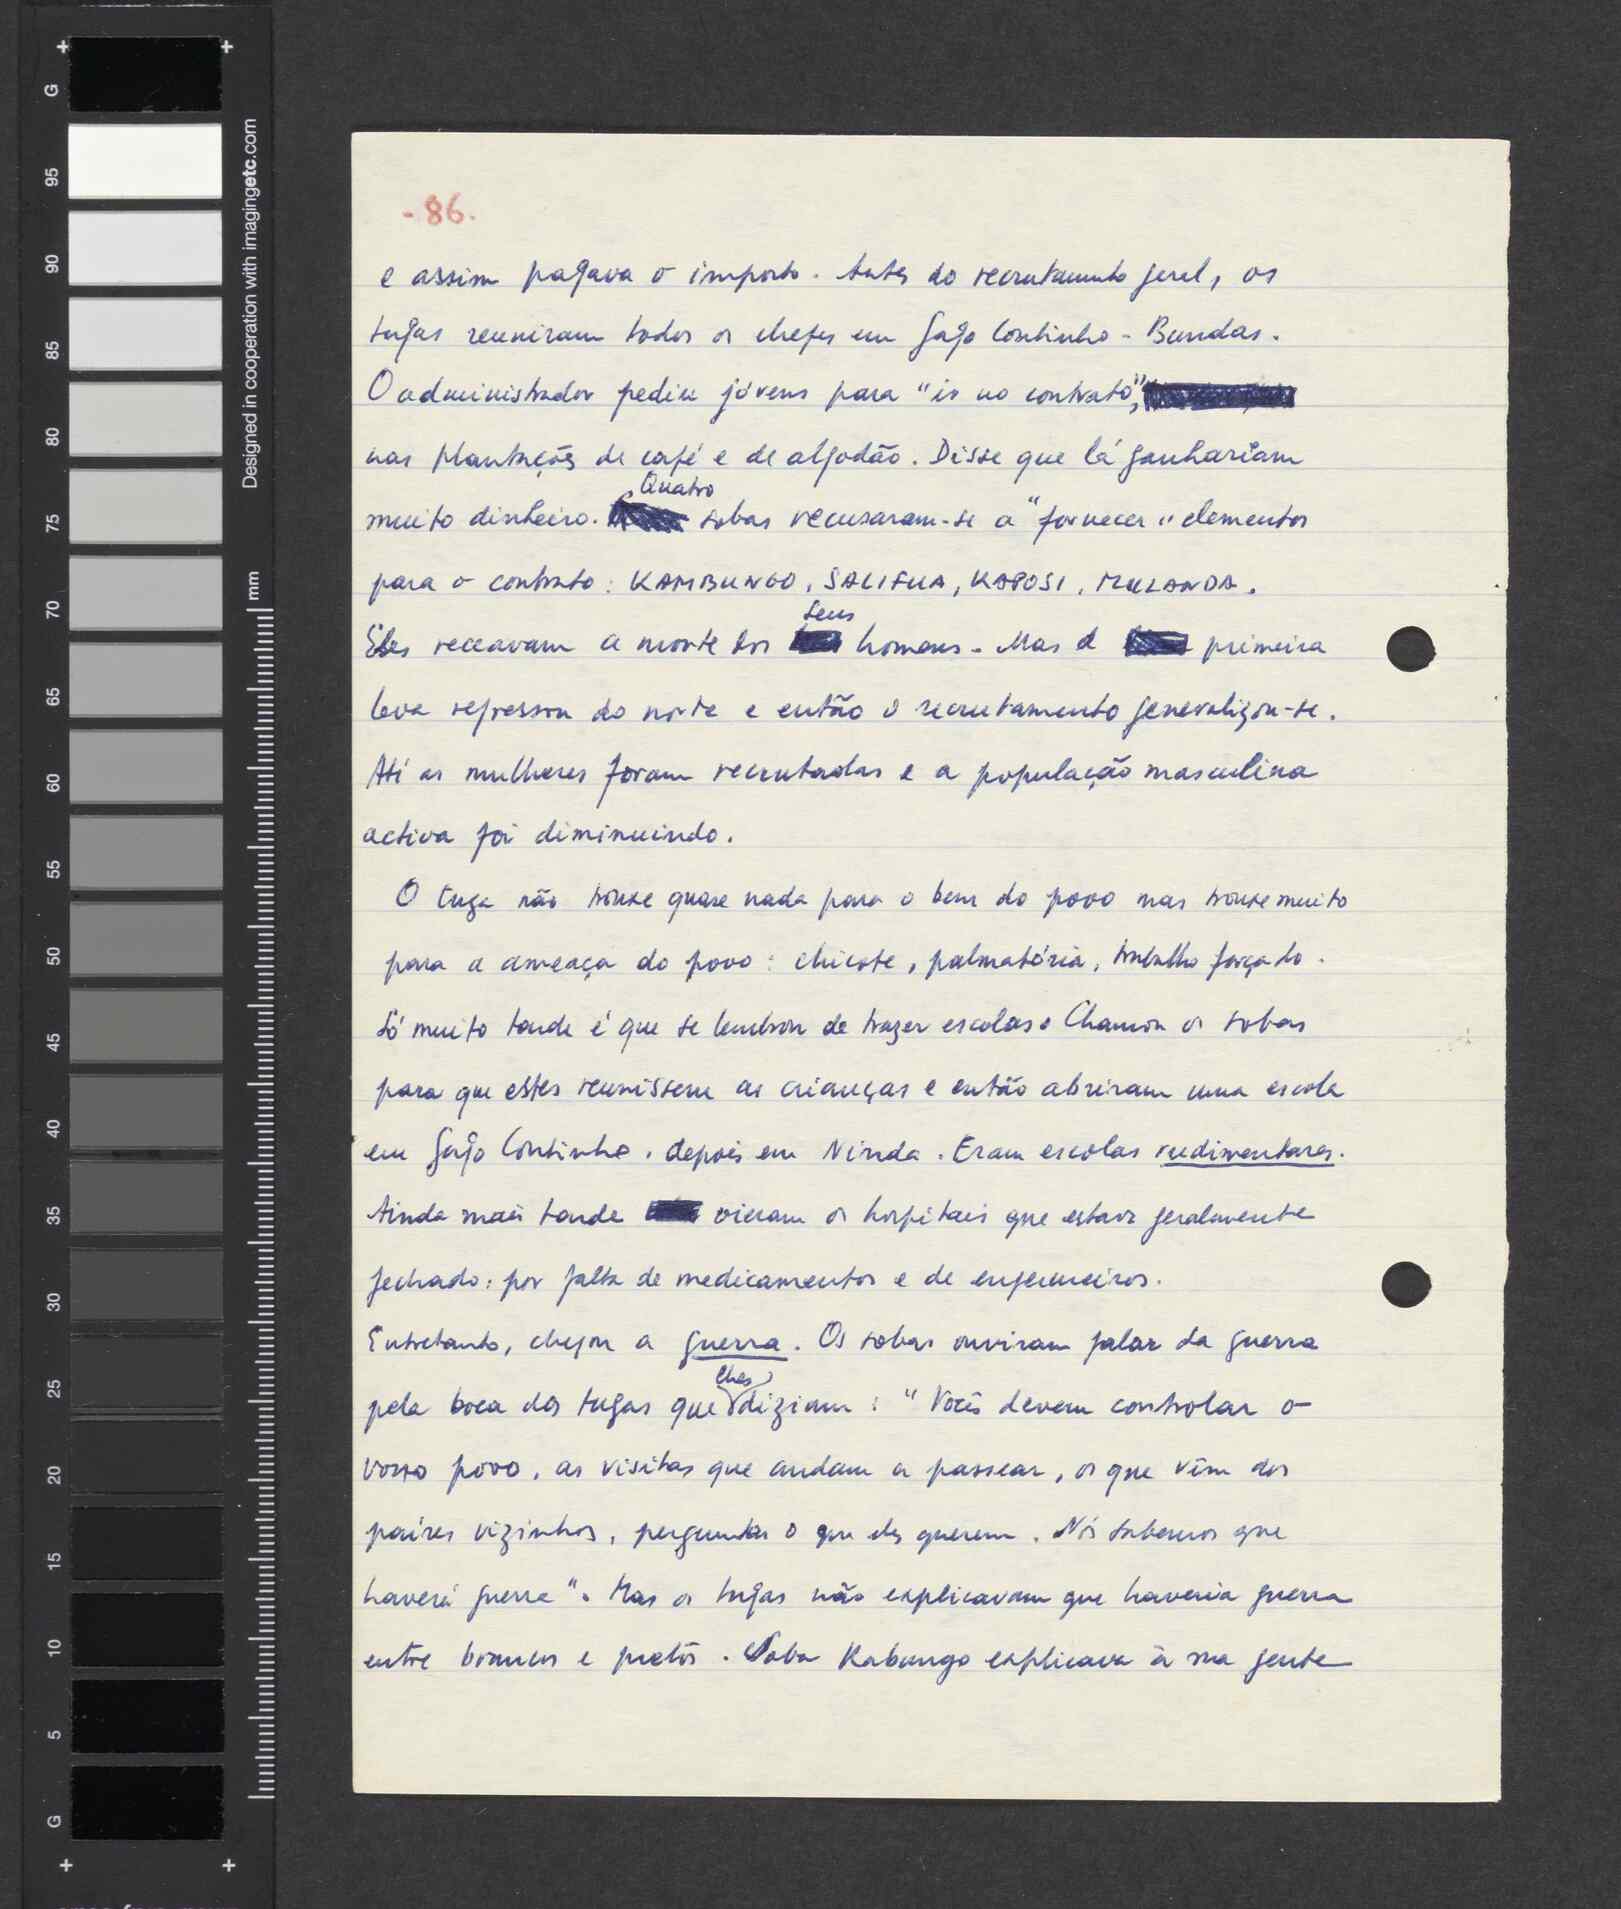 - 86.
e assim pagava o imposto. Antes do recrutamento geral, os
tugas reuniram todos os chefes em Gago Coutinho - Bundas.
O administrador pediu jóvens para "ir no contrato",
nas plantações de café e de algodão. Disse que lá ganhariam
Quatro
muito dinheiro. sobas recusaram-se a "fornecer" elementos
para o contrato: KAMBUNGO, SALIFUA, KAPOSI, MULANDA.
seus
Eles receavam a morte dos homens. Mas a primeira
leva regressou do norte e então o recrutamento generalizou-se.
Até as mulheres foram recrutadas e a população masculina
activa foi diminuindo.
O tuga não trouxe quase nada para o bem do povo mas trouxe muito
para a ameaça do povo: chicote, palmatória, trabalho forçado.
Só muito tarde é que se lembrou de trazer escolas. Chamou os sobas
para que estes reunissem as crianças e então abriram uma escola
em Gago Coutinho, depois em Ninda. Eram escolas rudimentares.
Ainda mais tarde vieram os hospitais que estava geralmente
fechado: por falta de medicamentos e de enfermeiros.
Entretanto, chegou a guerra. Os sobas ouviram falar da guerra
lhes
pela boca dos tugas que diziam: "Vocês devem controlar o
vosso povo, as visitas que andam a passear, os que vêm dos
países vizinhos, perguntar o que eles querem. Nós sabemos que
haverá guerra". Mas os tugas não explicavam que haveria guerra
entre brancos e pretos. Soba Kabungo explicava à sua gente
G
95
90
85
80
75
70
65
60
55
50
45
40
35
30
25
20
15
10
5
G
mm
Designed in cooperation with imagingetc.com